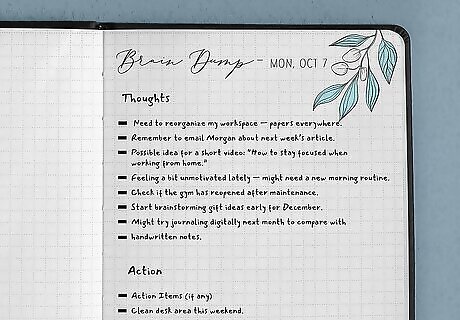 Brain Dump – MON, OCT 7
Thoughts
Need to reorganize my workspace — papers everywhere.
Remember to email Morgan about next week's article.
Possible idea for a short video: "How to stay focused when
working from home."
Feeling a bit unmotivated lately — might need a new morning routine.
Check if the gym has reopened after maintenance.
Start brainstorming gift ideas early for December.
Might try journaling digitally next month to compare with
handwritten notes.
Action
Action Items (if any)
Clean desk area this weekend.